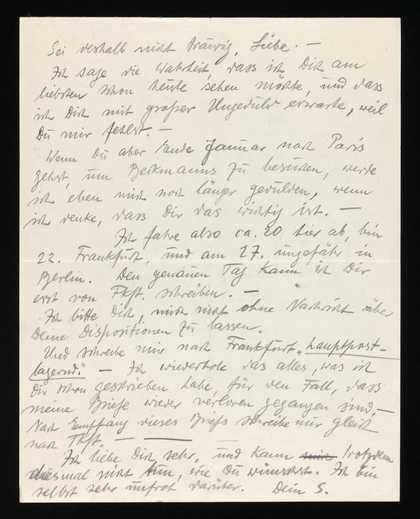 Sei deshalb nicht traurig, Liebe. —
Ich sage die Wahrheit, dass ich Dich am
liebsten schon heute sehen möchte, und dass
ich Dich mit großer Ungeduld erwarte, weil
Du mir fehlst. —
Wenn Du aber Ende Januar nach Paris
gehst, um Beckmanns zu besuchen, werde
ich eben mich noch länger gedulden, wenn
ich denke, dass Dir das wichtig ist. —
Ich fahre also ca. 20 hier ab, bin
22. Frankfurt, und am 27. ungefähr in
Berlin. Den genauen Tag kann ich Dir
erst von Fkft. schreiben. —
Ich bitte Dich, mich nicht ohne Nachricht über
Deine Dispositionen zu lassen.
Und schreibe mir nach Frankfurt „hauptpost-
lagernd." — Ich wiederhole das alles, was ich
Dir schon geschrieben habe, für den Fall, dass
meine Briefe wieder verloren gegangen sind, —
Nach Empfang dieses Briefs schreibe mir gleich
nach Fkft. —
Ich liebe Dich sehr, und kann trotzdem
diesmal nicht tun, wie Du wünschst. Ich bin
selbst sehr unfroh darüber. Dein S.